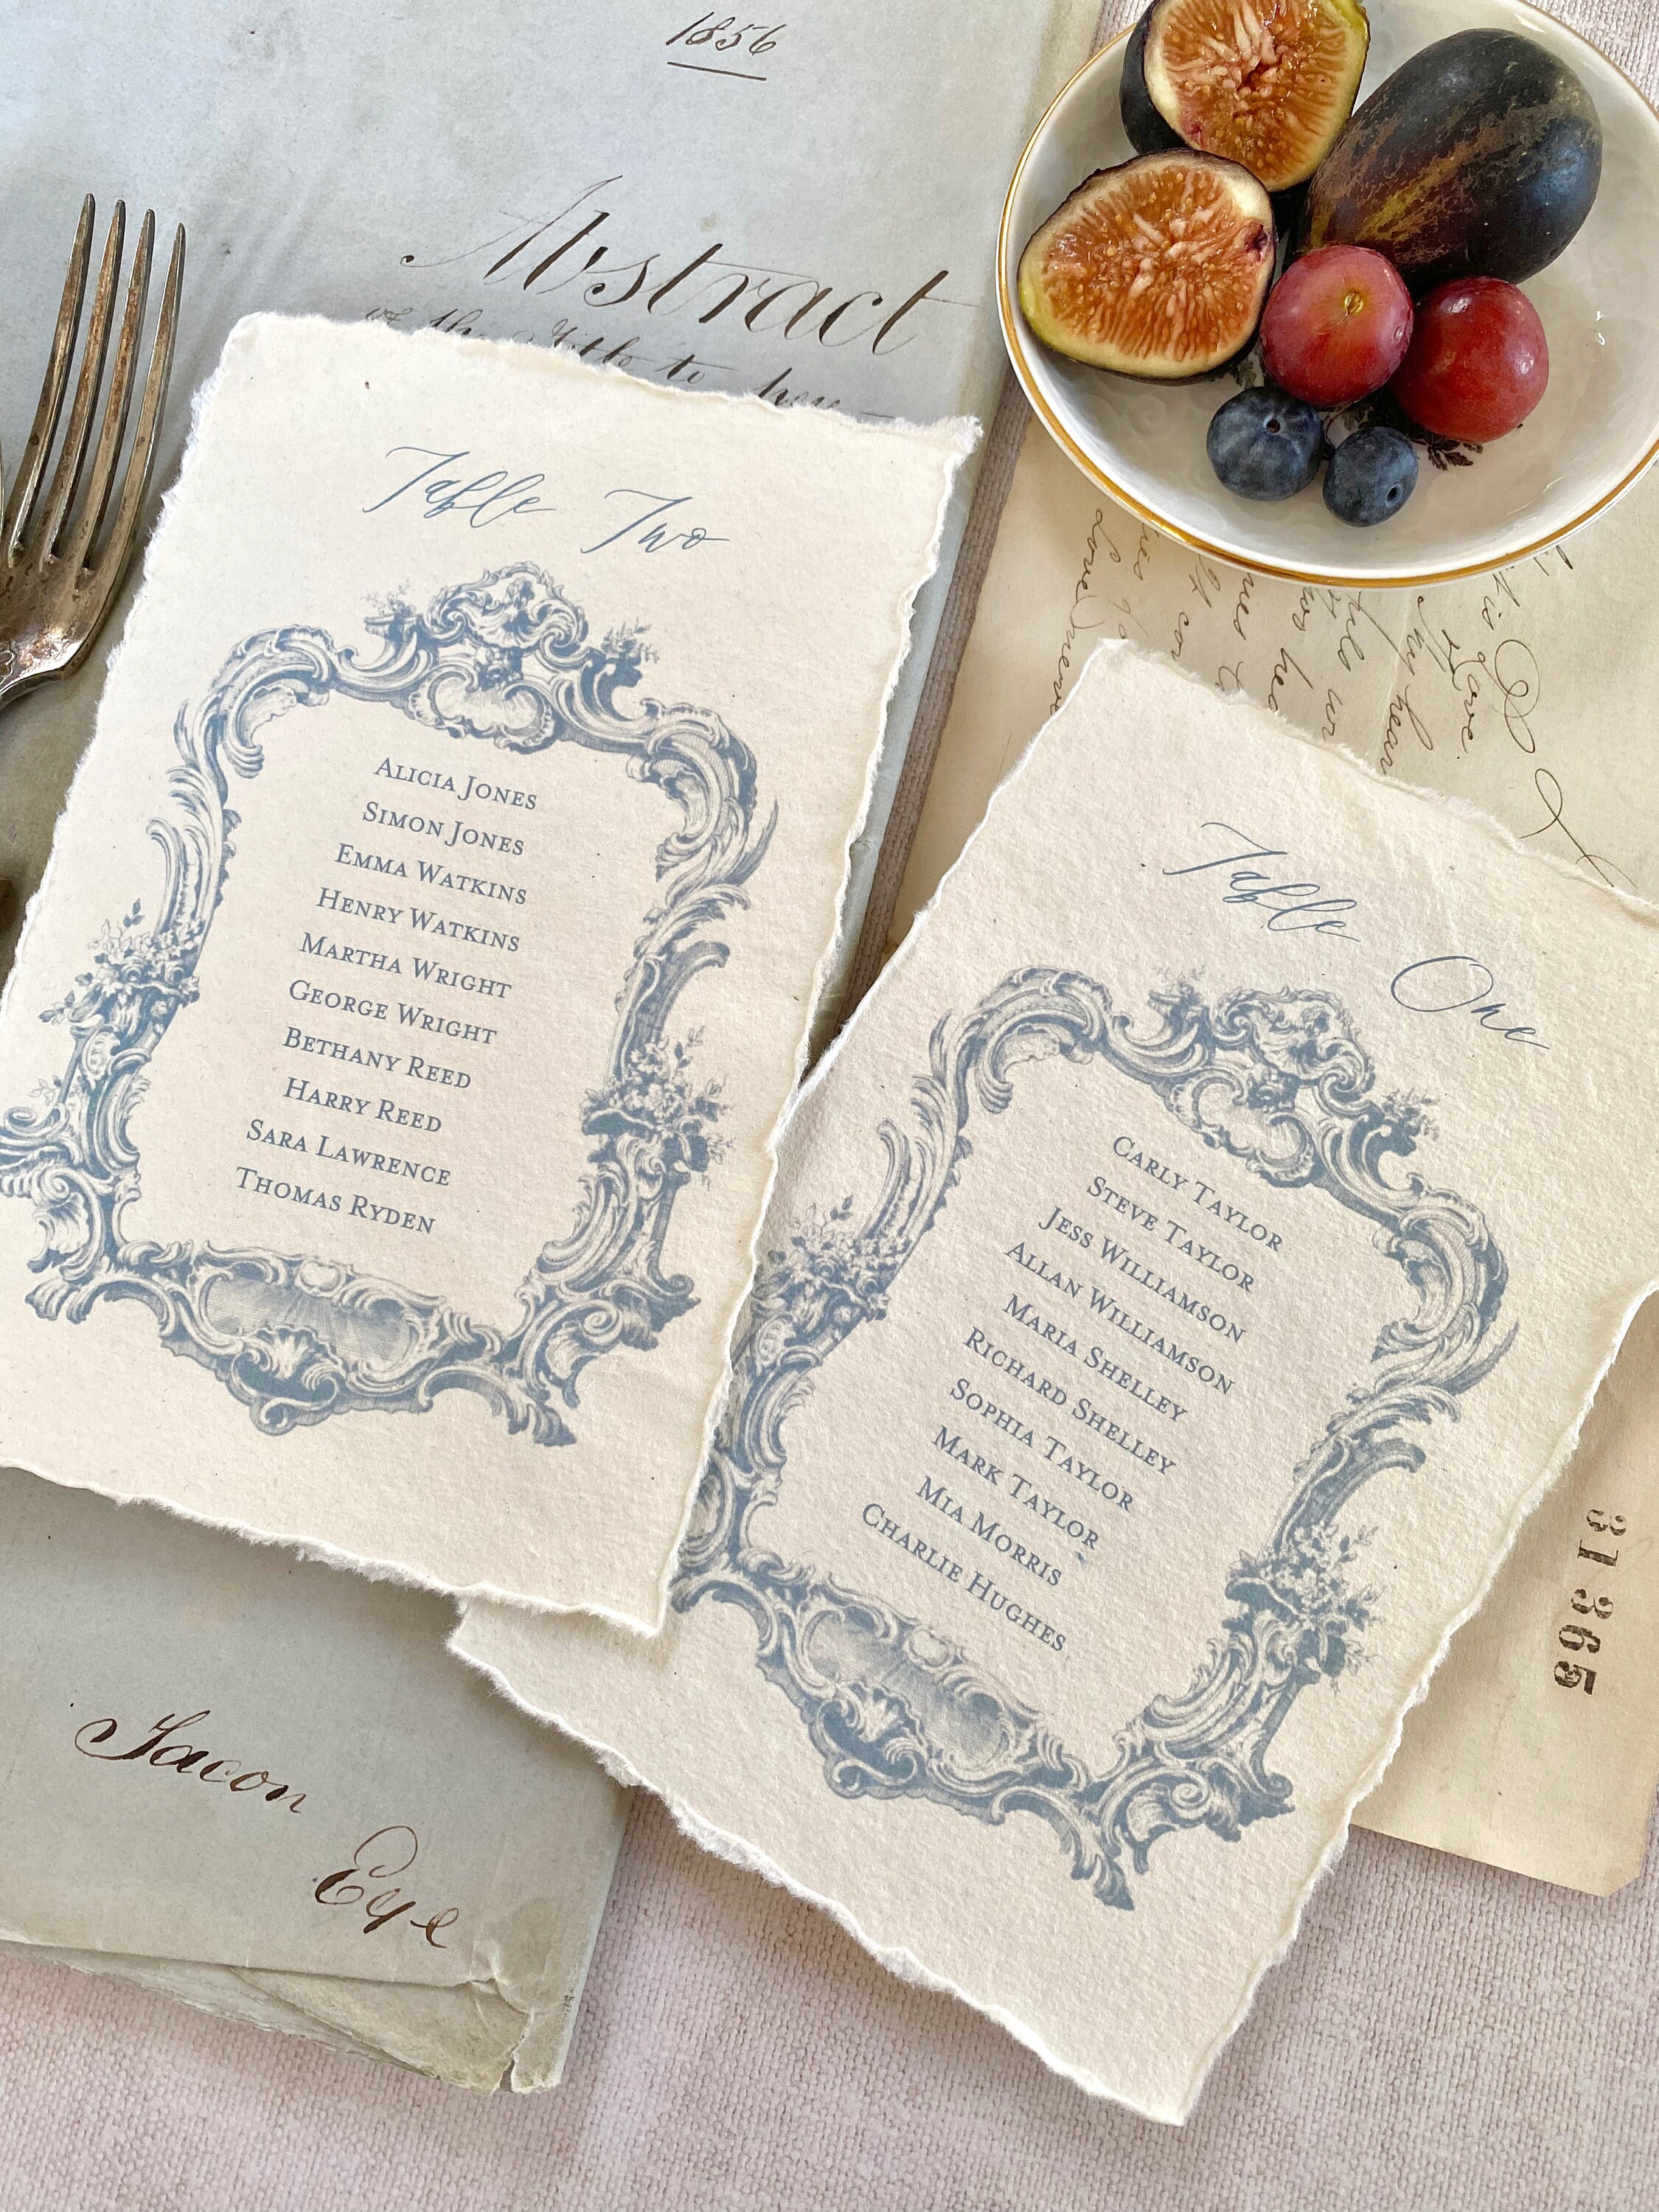 1856
Abstract
of the Title to
Table Two
ALICIA JONES
SIMON JONES
EMMA WATKINS
HENRY WATKINS
MARTHA WRIGHT
GEORGE WRIGHT
BETHANY REED
HARRY REED
SARA LAWRENCE
THOMAS RYDEN
Table One
CARLY TAYLOR
STEVE TAYLOR
JESS WILLIAMSON
ALLAN WILLIAMSON
MARIA SHELLEY
RICHARD SHELLEY
SOPHIA TAYLOR
MARK TAYLOR
MIA MORRIS
CHARLIE HUGHES
31365
Eye